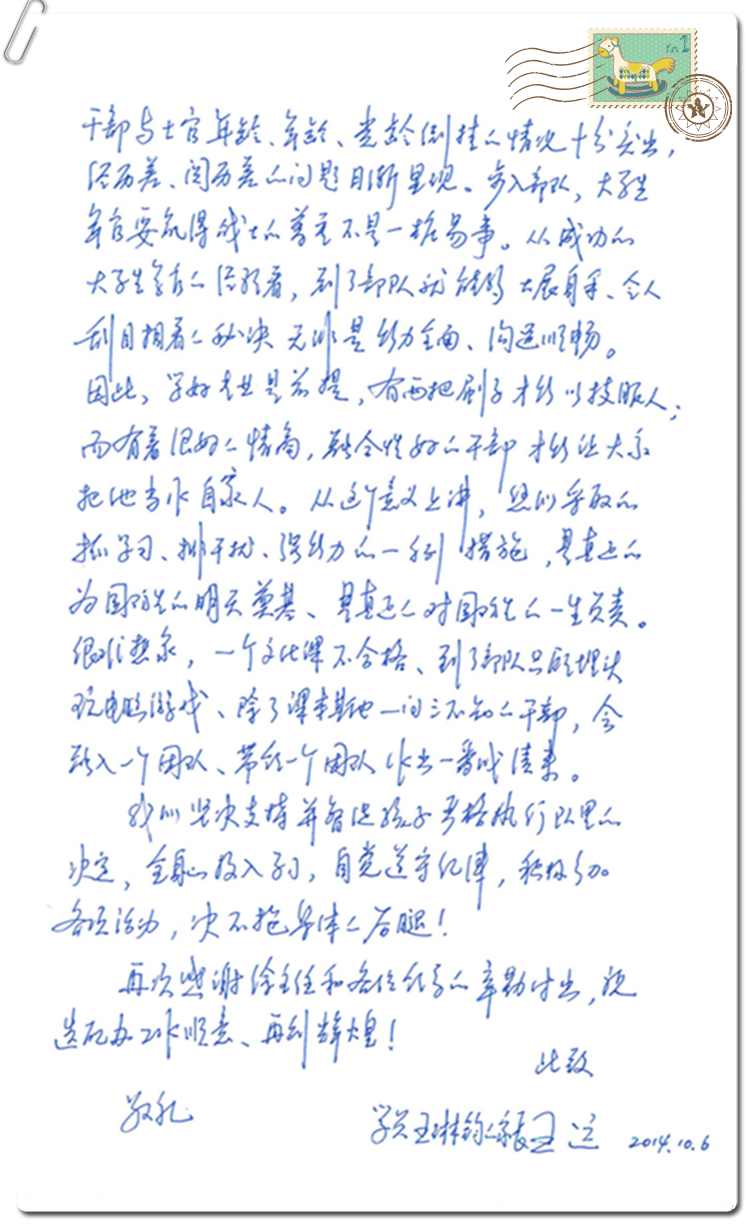 干部与士官年龄、军龄、党龄倒挂的情况十分突出，
经历差、阅历差的问题日渐呈现。步入部队，大学生
军官要讯得战士的尊重不是一桩易事。从成功的
大学生军官的经验看，到了部队就能够大展身手、令人
刮目相看的秘决无非是能力全面、沟通顺畅。
因此，学好专业是前提，有两把刷子才能以技服人；
而有着很好的情商，融合性好的干部才能让大家
把他当作自家人。从这个意义上讲，您们采取的
抓学习、排干扰、强能力的一系列措施，是真正的
为国防生的明天奠基、是真正的对国防生的一生负责。
很难想象，一个文化课不合格、到了部队只能埋头
玩电脑游戏、除了课本其他一问三不知的干部，会
融入一个团队、带领一个团队作出一番成绩来。
我们坚决支持并督促孩子严格执行队里的
决定，全身心投入学习，自觉遵守纪律，积极参加
各项活动，决不拖集体的后腿！
再次感谢徐主任和各位领导的辛勤付出，祝
选配办工作顺意、再创辉煌！
此致
敬礼
学员王琳钧的家长王
2014.10.6
1